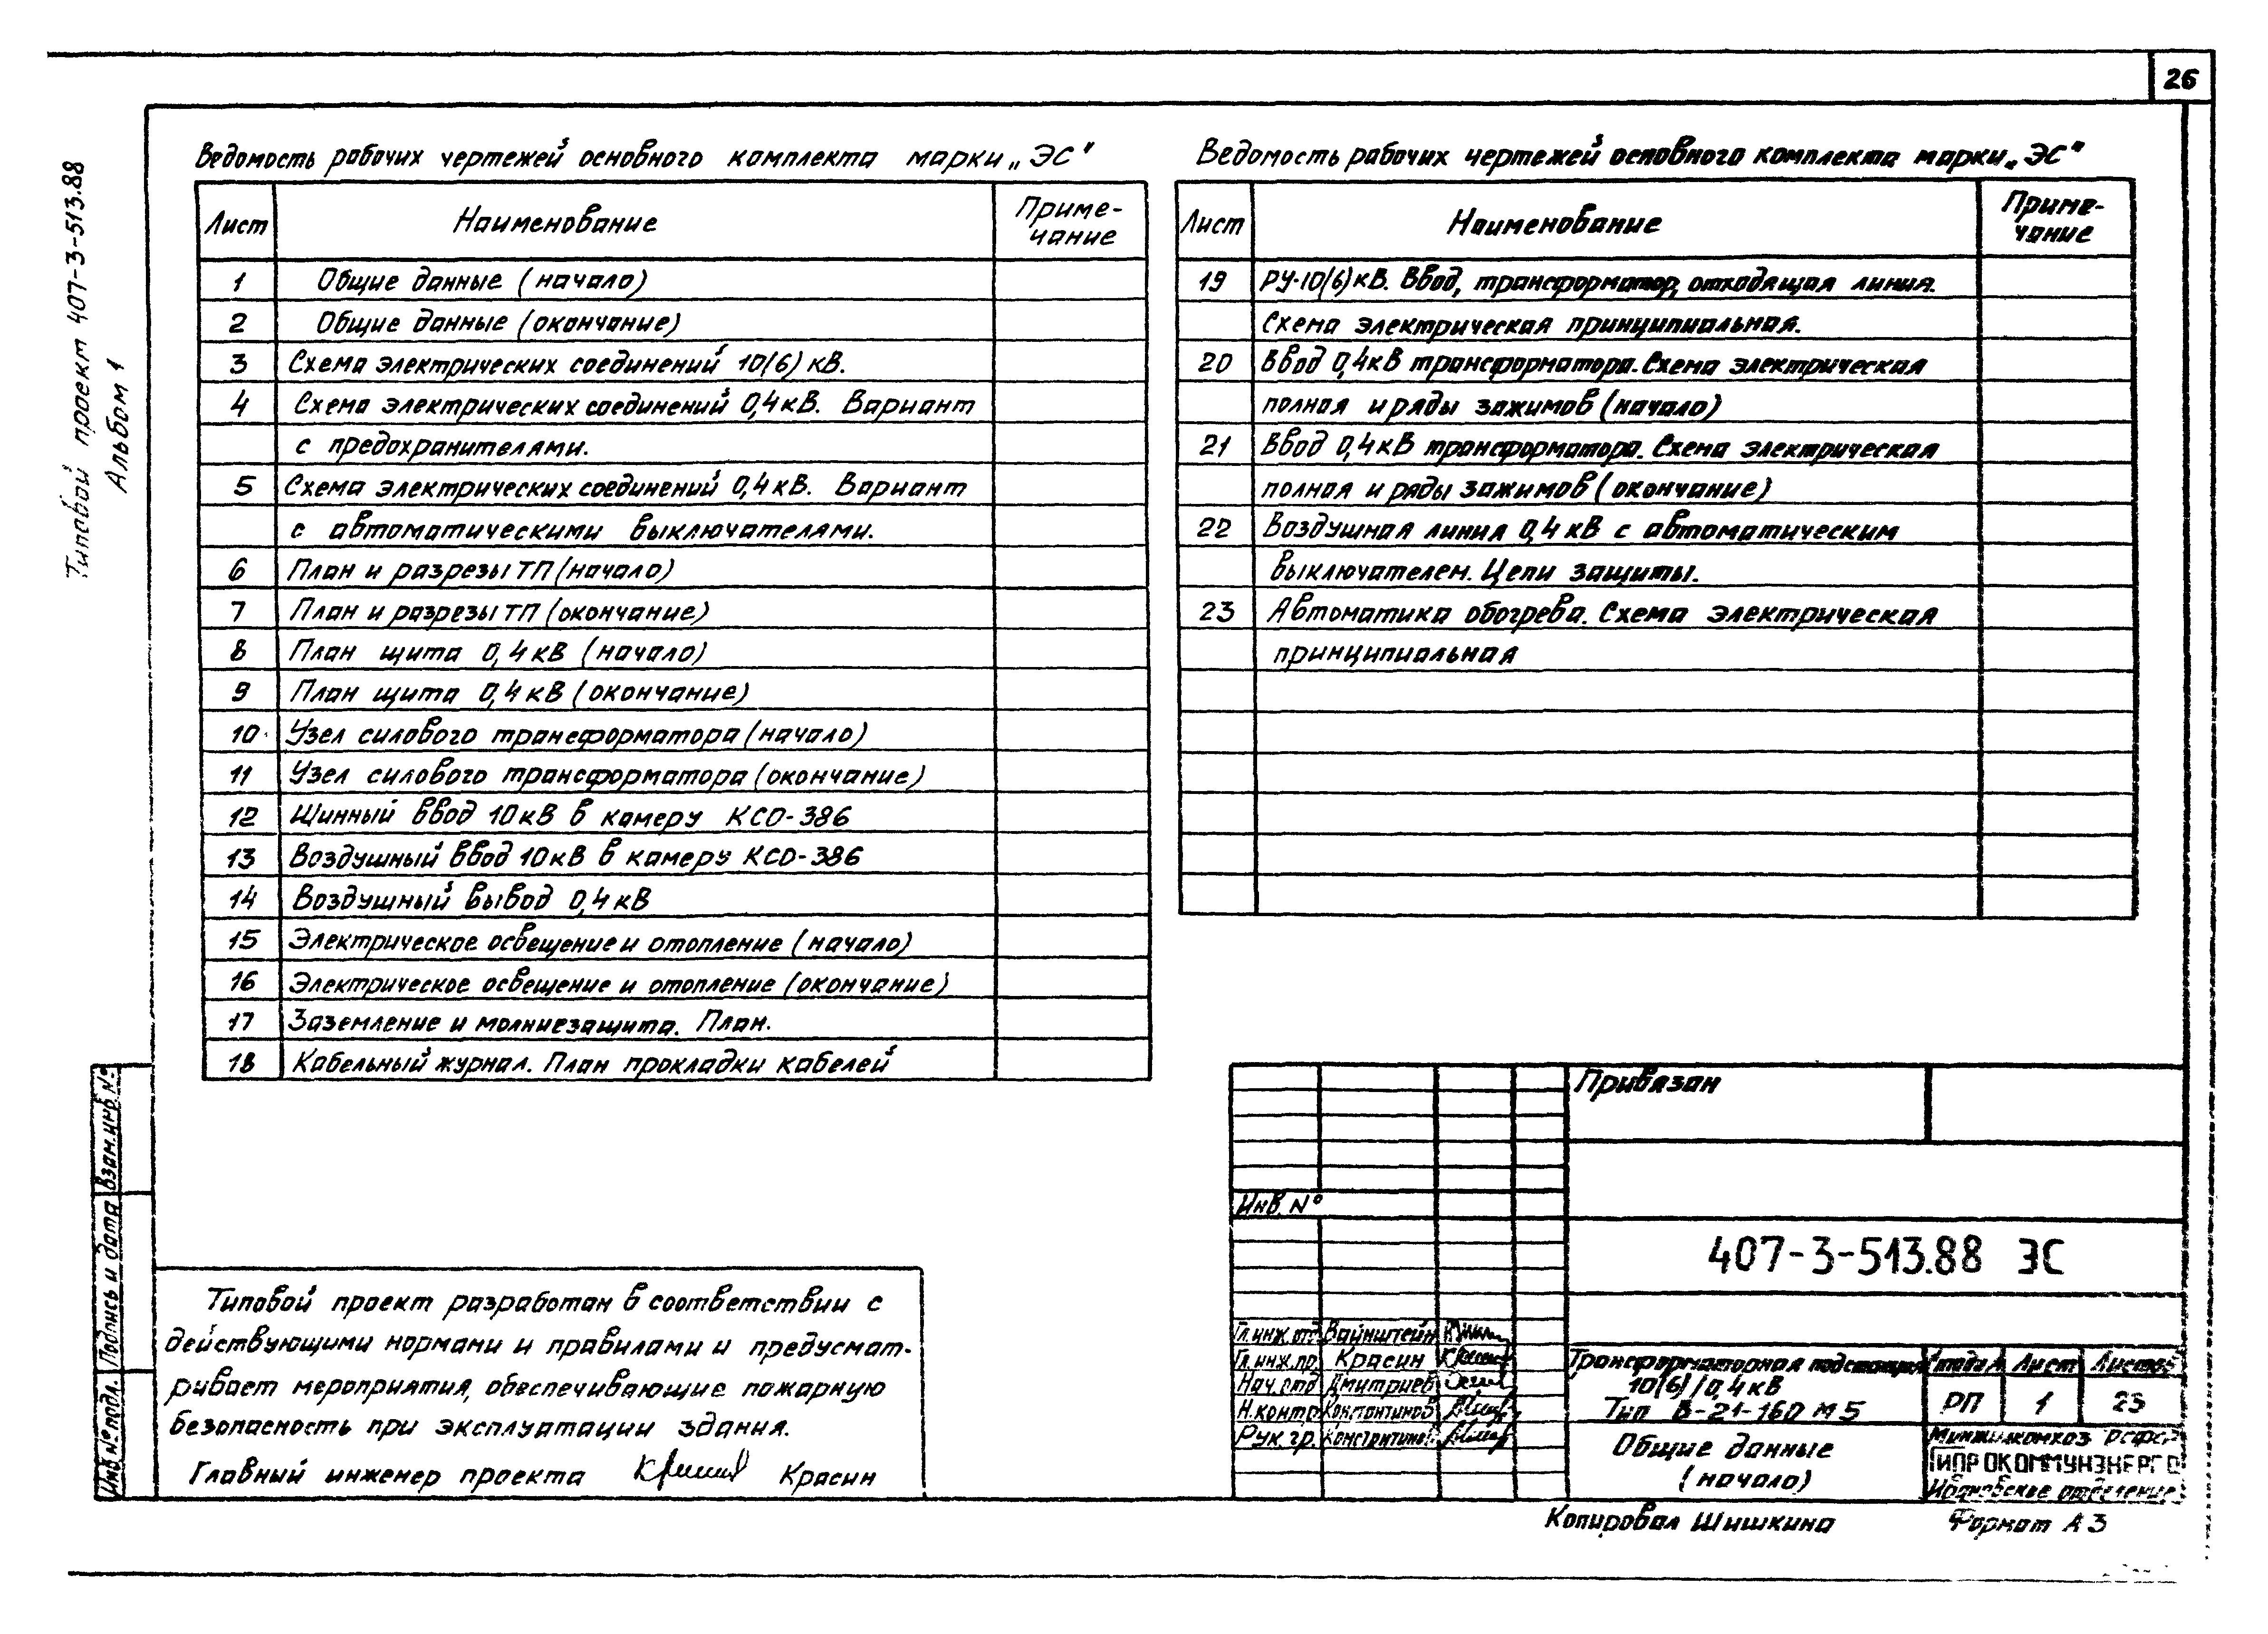 26
Типовой проект 407-3-513.88
Альбом 1
Ведомость рабочих чертежей основного комплекта марки „ЭС"
Лист Наименование Приме-
чание
1 Общие данные (начало)
2 Общие данные (окончание)
3 Схема электрических соединений 10(6) кВ.
4 Схема электрических соединений 0,4кВ. Вариант
с предохранителями.
5 Схема электрических соединений 0,4кВ. Вариант
с автоматическими выключателями.
6 План и разрезы ТП (начало)
7 План и разрезы ТП (окончание)
8 План щита 0,4кВ (начало)
9 План щита 0,4кВ (окончание)
10 Узел силового трансформатора (начало)
11 Узел силового трансформатора (окончание)
12 Шинный ввод 10кВ в камеру КСО-386
13 Воздушный ввод 10кВ в камеру КСО-386
14 Воздушный вывод 0,4кВ
15 Электрическое освещение и отопление (начало)
16 Электрическое освещение и отопление (окончание)
17 Заземление и молниезащита. План.
18 Кабельный журнал. План прокладки кабелей
Ведомость рабочих чертежей основного комплекта марки „ЭС"
Лист Наименование Приме-
чание
19 РУ-10(6)кВ. Ввод, трансформатор, отходящая линия.
Схема электрическая принципиальная.
20 Ввод 0,4кВ трансформатора. Схема электрическая
полная и ряды зажимов (начало)
21 Ввод 0,4кВ трансформатора. Схема электрическая
полная и ряды зажимов (окончание)
22 Воздушная линия 0,4кВ с автоматическим
выключателем. Цепи защиты.
23 Автоматика обогрева. Схема электрическая
принципиальная
Типовой проект разработан в соответствии с
действующими нормами и правилами и предусмат-
ривает мероприятия, обеспечивающие пожарную
безопасность при эксплуатации здания.
Главный инженер проекта Красин
Инв.№подл. Подпись и дата Взам.инв.№
Привязан
Инв.№
407-3-513.88 ЭС
Гл.инж.отд. Вайнштейн
Гл.инж.пр. Красин
Нач.отд. Дмитриев
Н.контр. Константинов
Рук.гр. Константинов
Трансформаторная подстанция
10(6)/0,4кВ
Тип В-21-160 М5
Стадия Лист Листов
РП 1 23
Общие данные
(начало)
Минжилкомхоз РСФСР
ГИПРОКОММУНЭНЕРГО
Ивановское отделение
Копировал Шишкина Формат А3